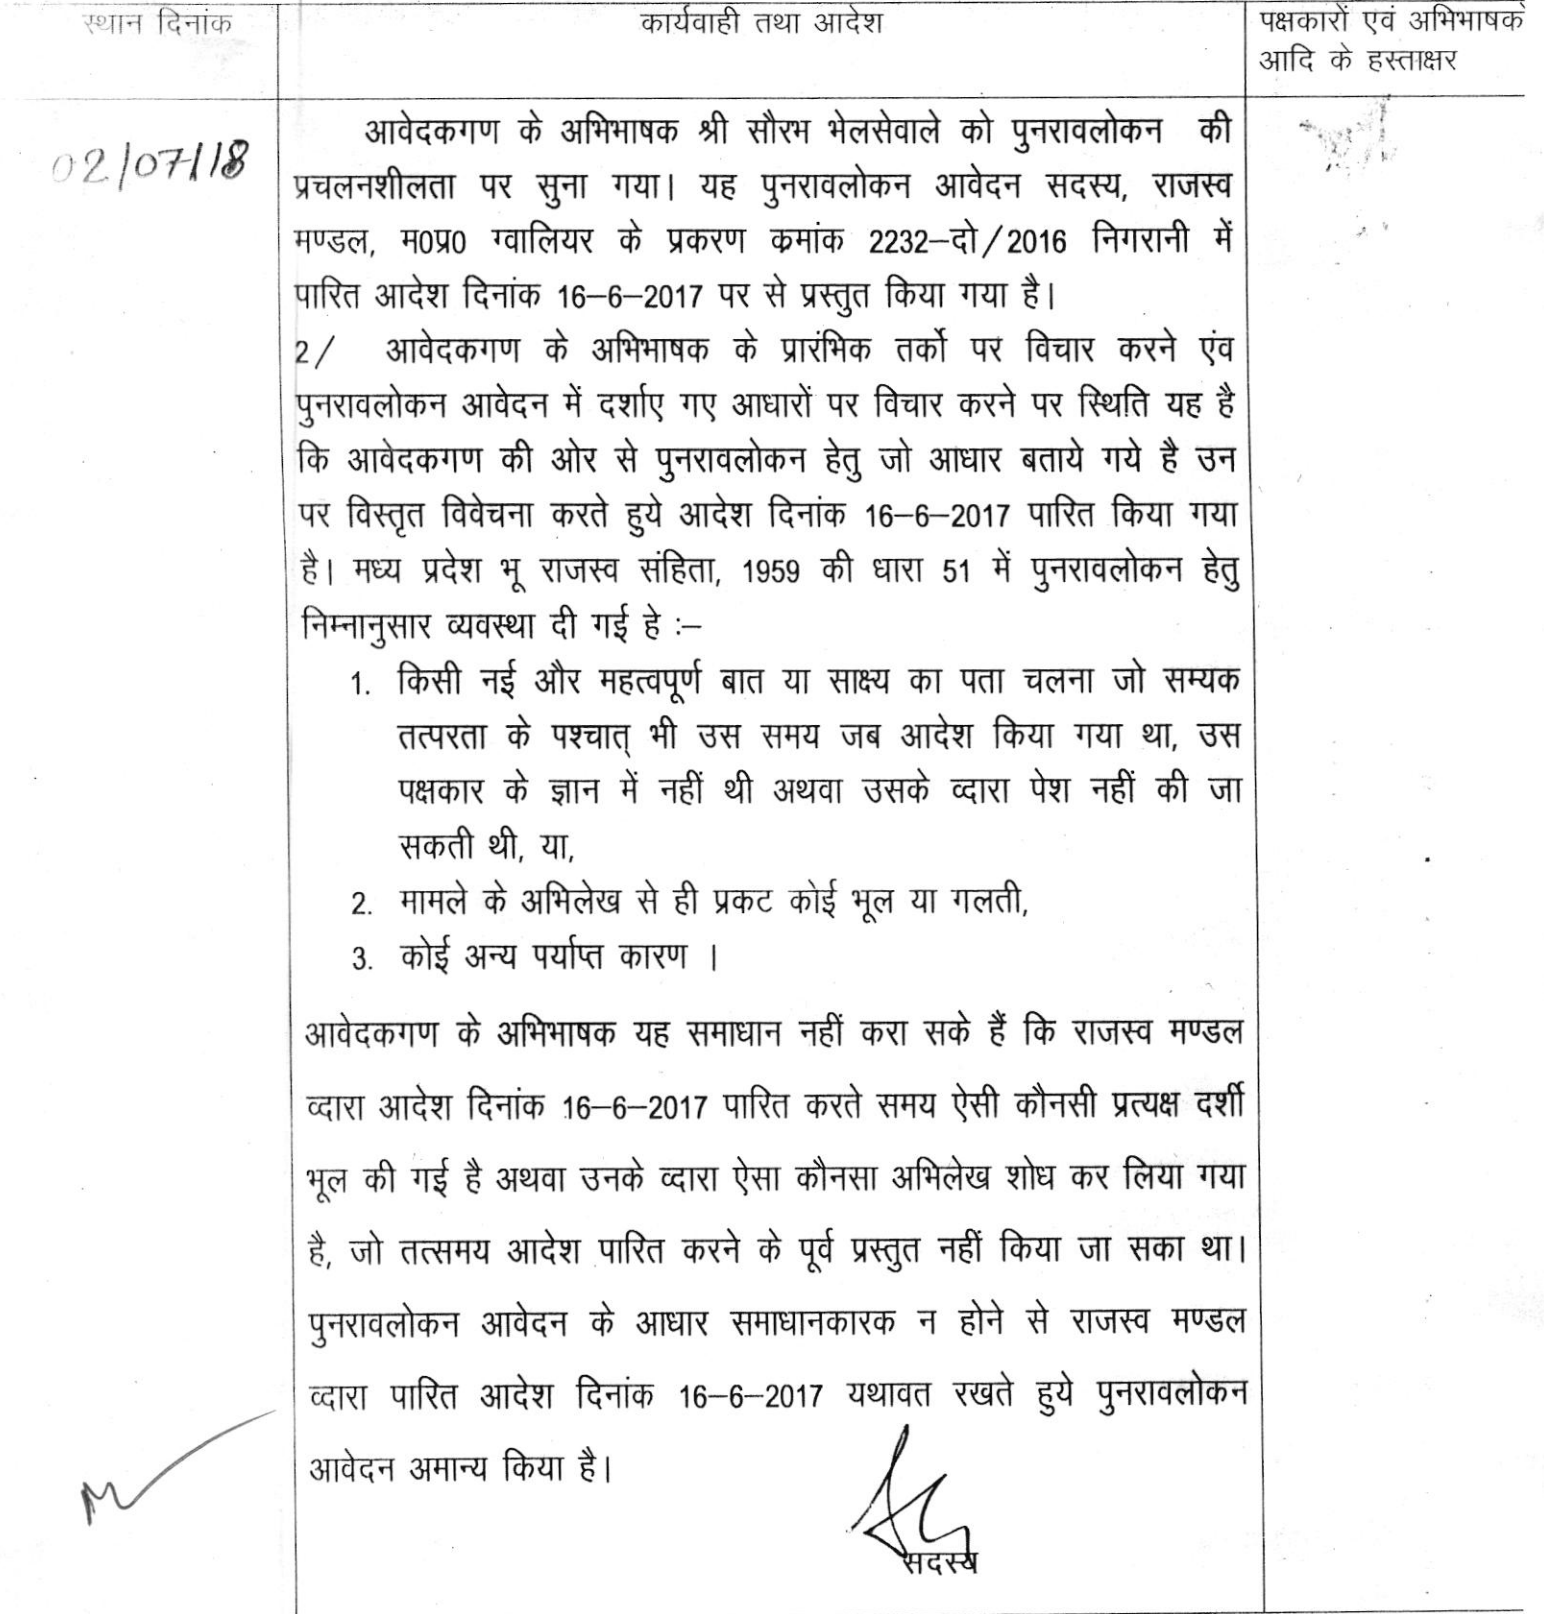 स्थान दिनांक
कार्यवाही तथा आदेश
पक्षकारों एवं अभिभाषकों
आदि के हस्ताक्षर
02/07/18
आवेदकगण के अभिभाषक श्री सौरभ भेलसेवाले को पुनरावलोकन की
प्रचलनशीलता पर सुना गया। यह पुनरावलोकन आवेदन सदस्य, राजस्व
मण्डल, म0प्र0 ग्वालियर के प्रकरण क्रमांक 2232–दो/2016 निगरानी में
पारित आदेश दिनांक 16–6–2017 पर से प्रस्तुत किया गया है।
2/ आवेदकगण के अभिभाषक के प्रारंभिक तर्को पर विचार करने एंव
पुनरावलोकन आवेदन में दर्शाए गए आधारों पर विचार करने पर स्थिति यह है
कि आवेदकगण की ओर से पुनरावलोकन हेतु जो आधार बताये गये है उन
पर विस्तृत विवेचना करते हुये आदेश दिनांक 16–6–2017 पारित किया गया
है। मध्य प्रदेश भू राजस्व संहिता, 1959 की धारा 51 में पुनरावलोकन हेतु
निम्नानुसार व्यवस्था दी गई हे :–
1. किसी नई और महत्वपूर्ण बात या साक्ष्य का पता चलना जो सम्यक
तत्परता के पश्चात् भी उस समय जब आदेश किया गया था, उस
पक्षकार के ज्ञान में नहीं थी अथवा उसके व्दारा पेश नहीं की जा
सकती थी, या,
2. मामले के अभिलेख से ही प्रकट कोई भूल या गलती,
3. कोई अन्य पर्याप्त कारण ।
आवेदकगण के अभिभाषक यह समाधान नहीं करा सके हैं कि राजस्व मण्डल
व्दारा आदेश दिनांक 16–6–2017 पारित करते समय ऐसी कौनसी प्रत्यक्ष दर्शी
भूल की गई है अथवा उनके व्दारा ऐसा कौनसा अभिलेख शोध कर लिया गया
है, जो तत्समय आदेश पारित करने के पूर्व प्रस्तुत नहीं किया जा सका था।
पुनरावलोकन आवेदन के आधार समाधानकारक न होने से राजस्व मण्डल
व्दारा पारित आदेश दिनांक 16–6–2017 यथावत रखते हुये पुनरावलोकन
आवेदन अमान्य किया है।
सदस्य